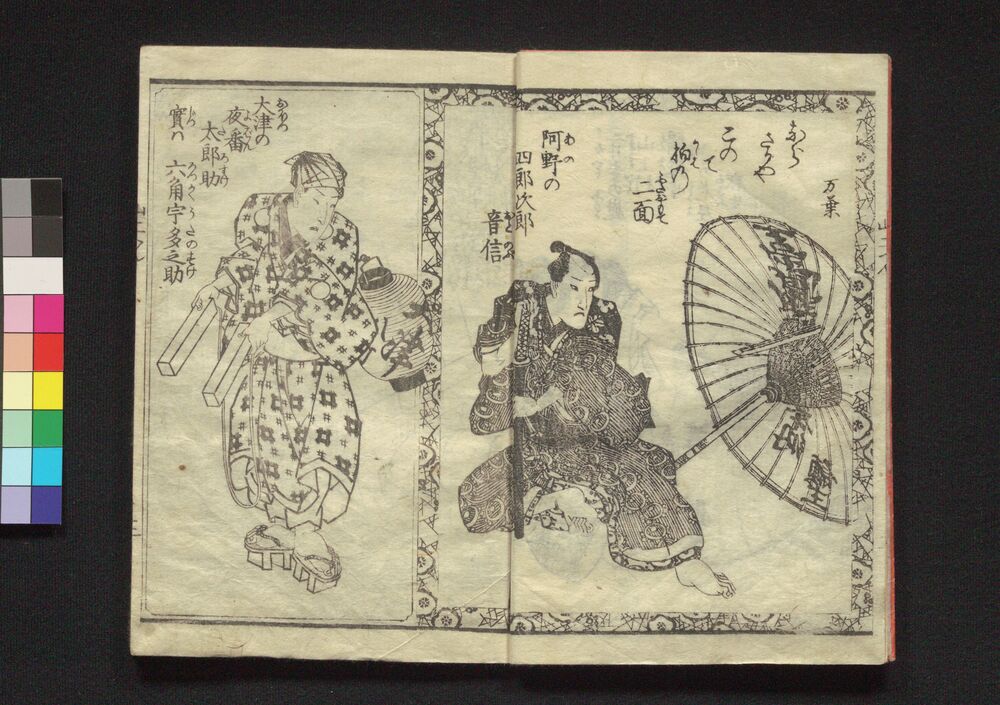 万葉
なら
さかや
この
て
柏の
二面
阿野の
四郎次郎
音信
大津の
夜番
太郎助
實ハ
六角宇多之助